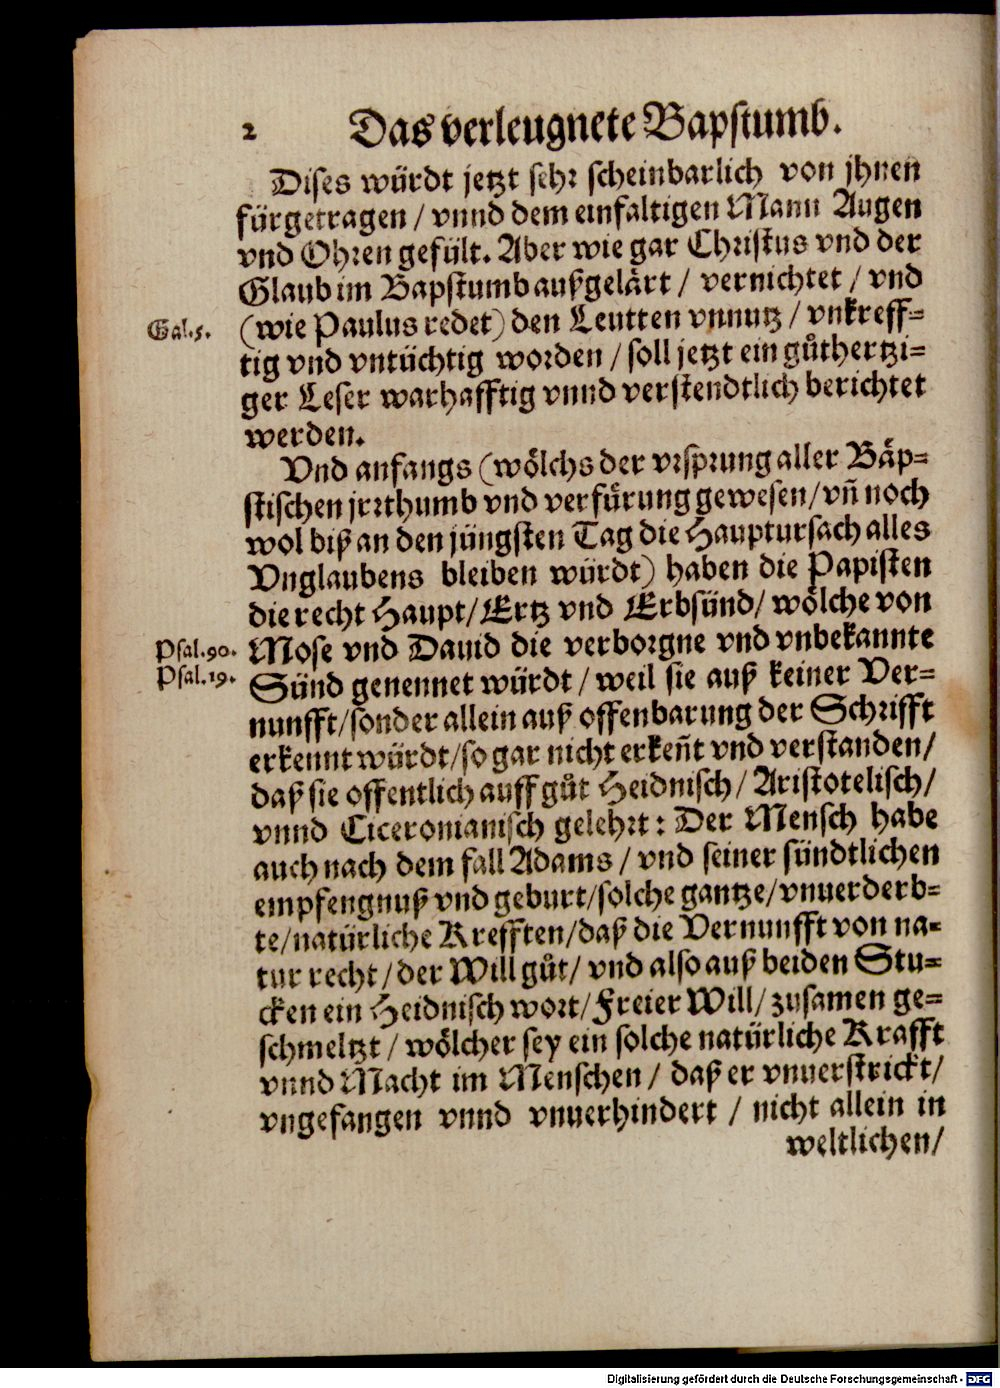 2 Das verleugnete Bapstumb.
Dises würdt jetzt sehr scheinbarlich von jhnen
fürgetragen / vnnd dem einfaltigen Mann Augen
vnd Ohren gefült. Aber wie gar Christus vnd der
Glaub im Bapstumb außgelärt / vernichtet / vnd
Gal.5. (wie Paulus redet) den Leutten vnnutz / vnkreff=
tig vnd vntüchtig worden / soll jetzt ein gůthertzi=
ger Leser warhafftig vnnd verstendtlich berichtet
werden.
Vnd anfangs (wölchs der vrsprung aller Bäp=
stischen jrrthumb vnd verfürung gewesen / vñ noch
wol biß an den jüngsten Tag die Hauptursach alles
Vnglaubens bleiben würdt) haben die Papisten
die recht Haupt / Ertz vnd Erbsünd / wölche von
Psal.90. Mose vnd Dauid die verborgne vnd vnbekannte
Psal.19. Sünd genennet würdt / weil sie auß keiner Ver=
nunfft / sonder allein auß offenbarung der Schrifft
erkennt würdt / so gar nicht erkeñt vnd verstanden /
daß sie offentlich auff gůt Heidnisch / Aristotelisch /
vnnd Ciceronianisch gelehrt: Der Mensch habe
auch nach dem fall Adams / vnd seiner sündtlichen
empfengnuß vnd geburt / solche gantze / vnuerderb=
te / natürliche Krefften / daß die Vernunfft von na=
tur recht / der Will gůt / vnd also auß beiden Stu=
cken ein Heidnisch wort / Freier Will / zusamen ge=
schmeltzt / wölcher sey ein solche natürliche Krafft
vnnd Macht im Menschen / daß er vnuerstrickt /
vngefangen vnnd vnuerhindert / nicht allein in
weltlichen /
Digitalisierung gefördert durch die Deutsche Forschungsgemeinschaft - DFG